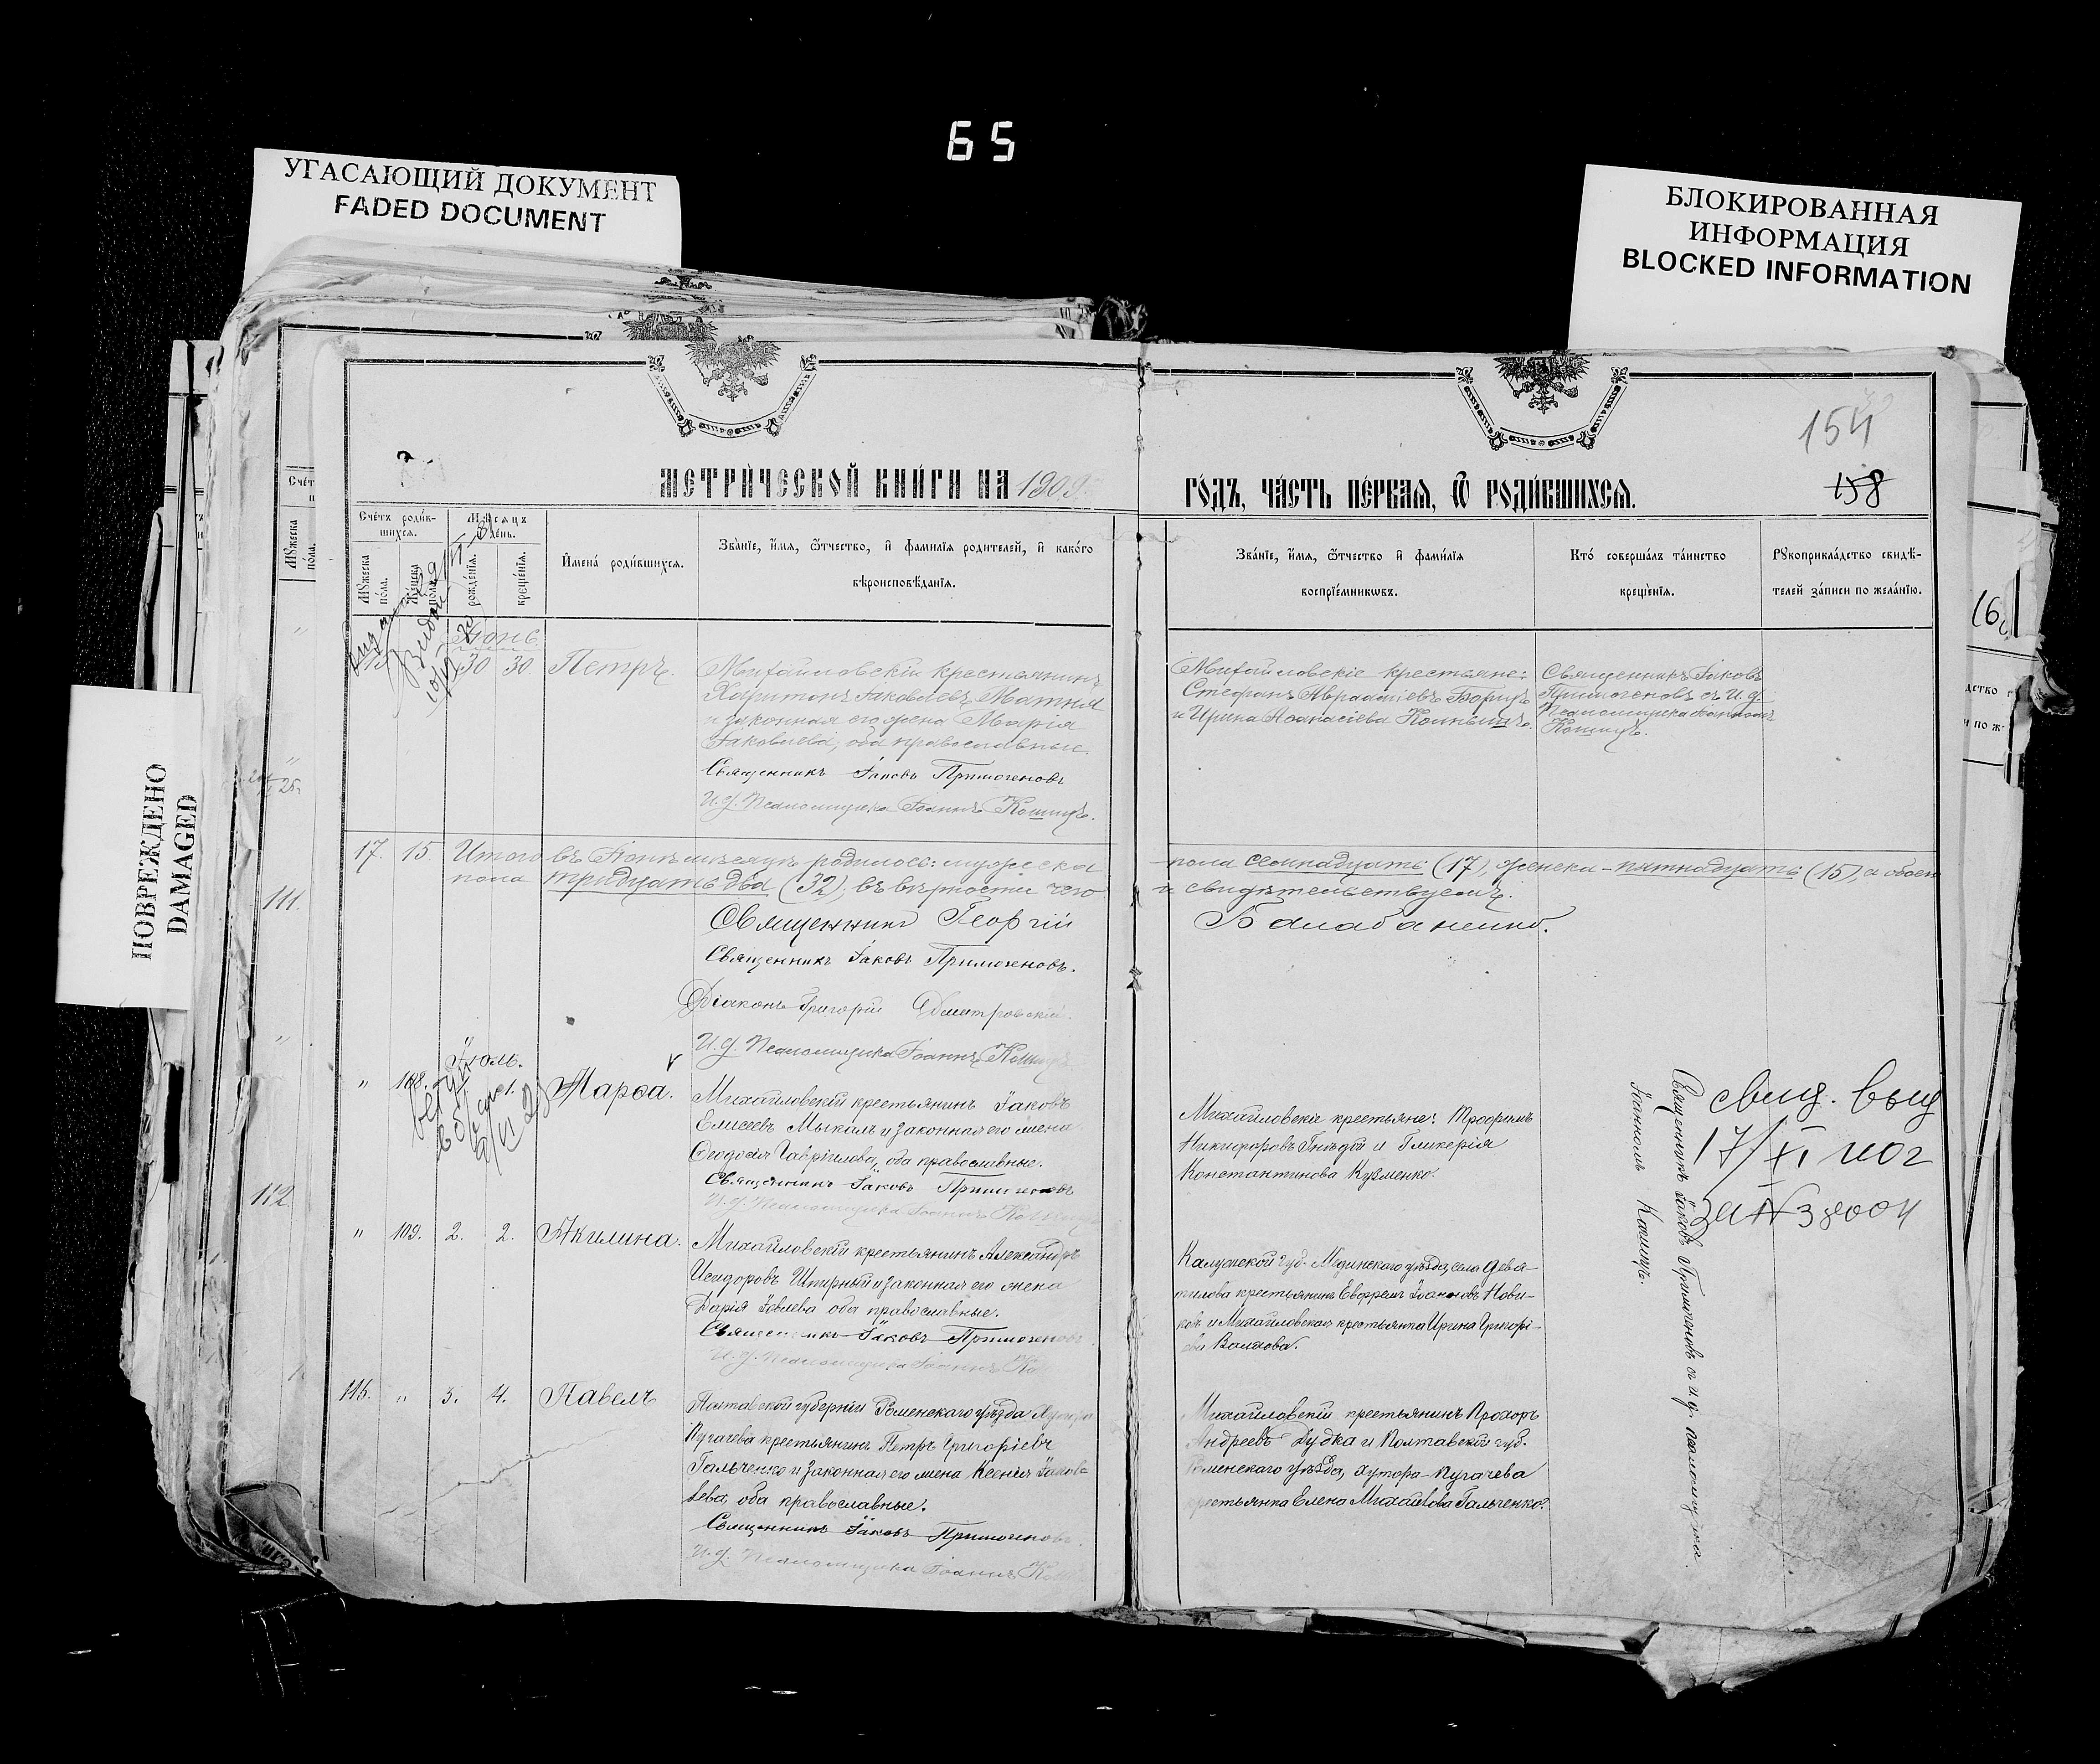 65
УГАСАЮЩИЙ ДОКУМЕНТ
FADED DOCUMENT
БЛОКИРОВАННАЯ
ИНФОРМАЦИЯ
BLOCKED INFORMATION
ПОВРЕЖДЕНО
DAMAGED
154
158
МЕТРИ́ЧЕСКОЙ КНИ́ГИ НА 1909
ГО́ДЪ, ЧА́СТЬ ПЕ́РВАЯ, Ѿ РОДИ́ВШИХСЯ.
Сче́тъ роди́в-
шихся.
Мꙋжеска по́ла.
Же́нска по́ла.
Мѣ́сяцъ
и҆ де́нь.
рожде́нїя.
креще́нїя.
И҆мена̀ роди́вшихся.
Зва́нїе, и҆́мя, ѻ҆́тчество, и҆ фами́лїя роди́телей, и҆ како́го
вѣроисповѣ́данїя.
Зва́нїе, и҆́мя, ѻ҆́тчество и҆ фами́лїя
воспрїе́мниковъ.
Кто́ соверша́лъ та́инство
креще́нїя.
Рꙋкоприкла́дство свидѣ́-
телей за́писи по жела́нїю.
Іюнь
30 30 Петръ.
Михайловскій крестьянинъ
Харитонъ Іаковлевъ Матня
и законная его жена Марія
Іаковлева, оба православные.
Священникъ Іаковъ Примогеновъ
И. д. Псаломщика Іоаннъ Кошицъ.
Михайловскіе крестьяне:
Стефанъ Авраміевъ
и Ирина Аѳанасіева
Священникъ Іаковъ
Примогеновъ съ И. д.
Псаломщика
17. 15. Итого въ Іюнѣ мѣсяцѣ родилось: мужеска
пола семнадцать (17), женска - пятнадцать (15), а обоего
пола тридцать два (32); въ вѣрности чего
и свидѣтельствуемъ.
Священникъ Георгій Балабаненко.
Священникъ Іаковъ Примогеновъ.
Діаконъ Григорій Дмитровскій.
И. д. Псаломщика Іоаннъ
Іюль.
" 108. 1. Марѳа.
Михайловскій крестьянинъ Іаковъ
Елисеевъ Мыкалъ и законная его жена
Ѳеодосія Гавріилова, оба православные.
Священникъ Іаковъ Примогеновъ
И. д. Псаломщика Іоаннъ
Михайловскіе крестьяне: Трофимъ
Никифоровъ Гнѣдой и Гликерія
Константинова Кузменко.
свид. выд
17/XI
за № 38004
Священникъ Іаковъ Примогеновъ съ и. д. псаломщика
Іоанномъ Кошицъ.
" 109. 2. 2. Акилина.
Михайловскій крестьянинъ Александръ
Исидоровъ Шпирный и законная его жена
Дарія Іовлева оба православные.
Священникъ Іаковъ Примогеновъ
И. д. Псаломщика Іоаннъ
Калужской губ. Мединскаго уѣзда, села Девя-
тилова крестьянинъ Евфремъ Іоанновъ Нови-
ковъ и Михайловская крестьянка Ирина Григорі-
ева Волхова.
115. " 3. 4. Павелъ
Полтавской губерніи Роменскаго уѣзда Хутора
Пугачева крестьянинъ Петръ Григоріевъ
Гальченко и законная его жена Ксенія Іаков-
лева оба православные.
Священникъ Іаковъ Примогеновъ.
И. д. Псаломщика Іоаннъ
Михайловскій крестьянинъ Прохоръ
Андреевъ Дудка и Полтавской губ.
Роменскаго уѣзда, хутора Пугачева
крестьянка Елена Михайлова Гальченко.
111.
112.